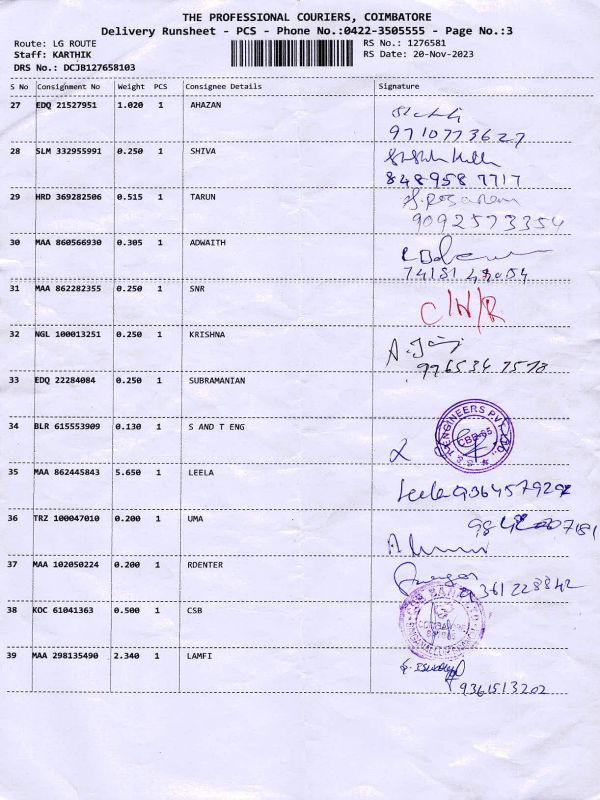 THE PROFESSIONAL COURIERS, COIMBATORE
Delivery Runsheet - PCS - Phone No.:0422-3505555 - Page No.:3
Route: LG ROUTE RS No.: 1276581
Staff: KARTHIK RS Date: 20-Nov-2023
DRS No.: DCJB127658103
S No Consignment No Weight PCS Consignee Details Signature
27 EDQ 21527951 1.020 1 AHAZAN
9710773627
28 SLM 332955991 0.250 1 SHIVA
848958 7717
29 HRD 369282506 0.515 1 TARUN
9092573354
30 MAA 860566930 0.305 1 ADWAITH
31 MAA 862282355 0.250 1 SNR C/N/R
32 NGL 100013251 0.250 1 KRISHNA
976534 7578
33 EDQ 22284084 0.250 1 SUBRAMANIAN
34 BLR 615553909 0.130 1 S AND T ENG
35 MAA 862445843 5.650 1 LEELA
Leela
36 TRZ 100047010 0.200 1 UMA
37 MAA 102050224 0.200 1 RDENTER
361 228842
38 KOC 61041363 0.500 1 CSB
39 MAA 298135490 2.340 1 LAMFI
9361513202